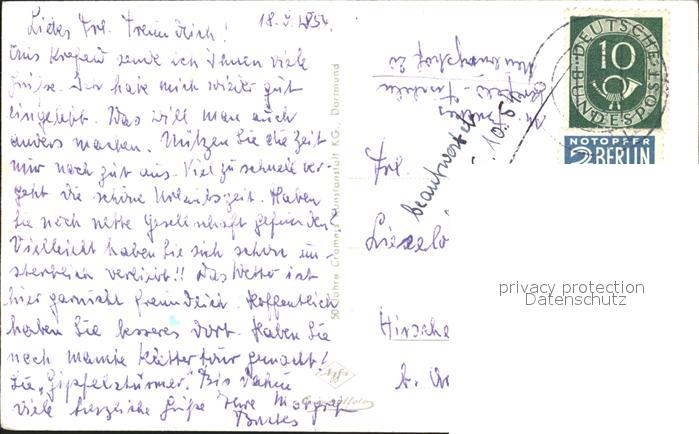 18.9.1954.
Liebes Frl. Freundlich!
Aus Krefeld sende ich Ihnen viele
Grüße. Ich habe mich wieder gut
eingelebt. Was will man auch
anders machen. Nützen Sie die Zeit
nur noch gut aus. Viel zu schnell ver-
geht die schöne Urlaubszeit. Haben
Sie noch nette Gesellschaft gefunden?
Vielleicht haben Sie sich schon un-
sterblich verliebt!! Das Wetter ist
hier garnicht freundlich. Hoffentlich
haben Sie besseres dort. Haben Sie
noch manche Klettertour gemacht?
Sie „Gipfelstürmer". Bis dahin
viele herzliche Grüße Ihre
50 Jahre Cramers Kunstanstalt KG., Dortmund
Agfa
Frl.
beantwortet
10.54
Lieselo
Hirsche
DEUTSCHE BUNDESPOST
10
NOTOPFER
2 BERLIN
privacy protection
Datenschutz